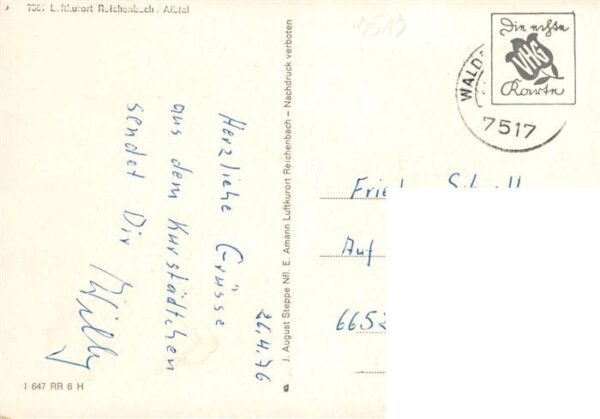 Luftkurort Reichenbach
7513
Herzliche Grüsse
aus dem Kurstädtchen
sendet Dir
Willy
26.4.76
J. August Steppe Nfl. E. Amann Luftkurort Reichenbach – Nachdruck verboten
I 647 RR 6 H
Die echte
VHG
Karte
WALD
7517
Auf
6652